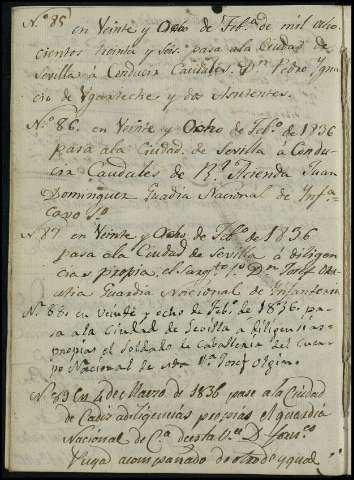 Nº. 85
en Veinte y Ocho de Feb.º de mil ocho
cientos treinta y seis. pasa ala Ciudad de
Sevilla á Conducir Caudales. Dn. Pedro Ygna
cio de Ygarteche y dos Asistentes.
Nº. 86. en Veinte y Ocho de Feb.º de 1836
pasa ala Ciudad. de Sevilla á Condu
cir Caudales de Rl. Acienda Juan
Dominguez Guardia Nacional de Infª.
Cavo 1º
Nº 87 en Veinte y Ocho de Feb.º de 1836
pasa ala Ciudad de Sevilla á diligen
cias propias, el Sargtº. 1º Dn. Josef
Guardia Nacional de Infanteria
Nº. 88. en veinte y ocho de Feb.º de 1836. pa
sa ala Ciudad de Sevilla a diligencias
propias el Soldado de Caballeria del Cuer
po Nacional de esta Vª. Josef Olgin.
Nº. 89 En 4 de Marzo de 1836 pase ala Ciudad
de Cadiz adiligencias propias el guardia
Nacional de Cª. de esta Vª. D.
Puga acompañado de